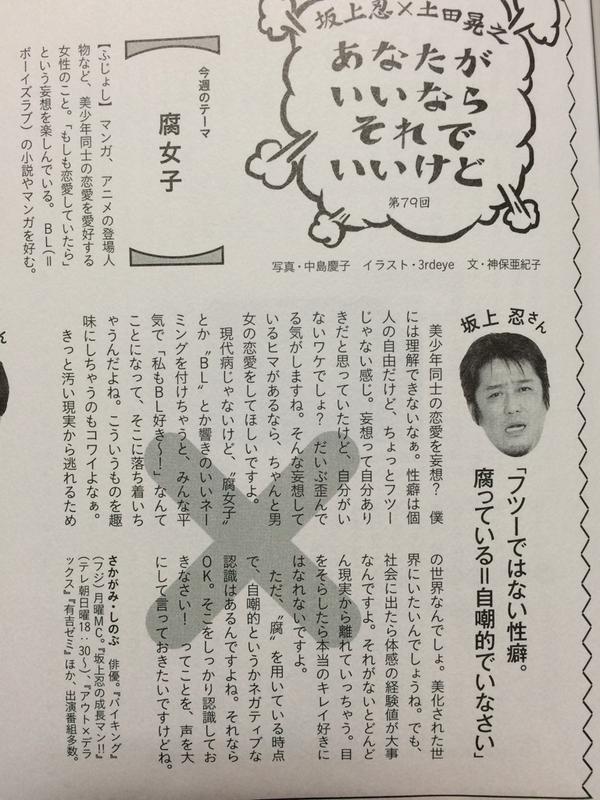 坂上忍×土田晃之
あなたが
いいなら
それで
いいけど
第79回
写真・中島慶子　イラスト・3rdeye　文・神保亜紀子
今週のテーマ
腐女子
【ふじょし】マンガ、アニメの登場人
物など、美少年同士の恋愛を愛好する
女性のこと。「もしも恋愛していたら」
という妄想を楽しんでいる。BL（＝
ボーイズラブ）の小説やマンガを好む。
坂上 忍さん
「フツーではない性癖。
腐っている＝自嘲的でいなさい」
美少年同士の恋愛を妄想？　僕
には理解できないなぁ。性癖は個
人の自由だけど、ちょっとフツー
じゃない感じ。妄想って自分あり
きだと思っていたけど、自分がい
ないワケでしょ？　だいぶ歪んで
る気がしますね。そんな妄想して
いるヒマがあるなら、ちゃんと男
女の恋愛をしてほしいですよ。
現代病じゃないけど、〝腐女子〟
とか〝BL〟とか響きのいいネー
ミングを付けちゃうと、みんな平
気で「私もBL好き〜！」なんて
ことになって、そこに落ち着いち
ゃうんだよね。こういうものを趣
味にしちゃうのもコワイよなぁ。
きっと汚い現実から逃れるため
の世界なんでしょ。美化された世
界にいたいんでしょうね。でも、
社会に出たら体感の経験値が大事
なんですよ。それがないとどんど
ん現実から離れていっちゃう。目
をそらしたら本当のキレイ好きに
はなれないですよ。
ただ、〝腐〟を用いている時点
で、自嘲的というかネガティブな
認識はあるんですよね。それなら
OK。そこをしっかり認識してお
きなさい！　ってことを、声を大
にして言っておきたいですけどね。
さかがみ・しのぶ　俳優。『バイキング』
（フジ）月曜MC。『坂上忍の成長マン!!』
（テレ朝日曜18：30〜）、『アウト×デラ
ックス』『有吉ゼミ』ほか、出演番組多数。
ん